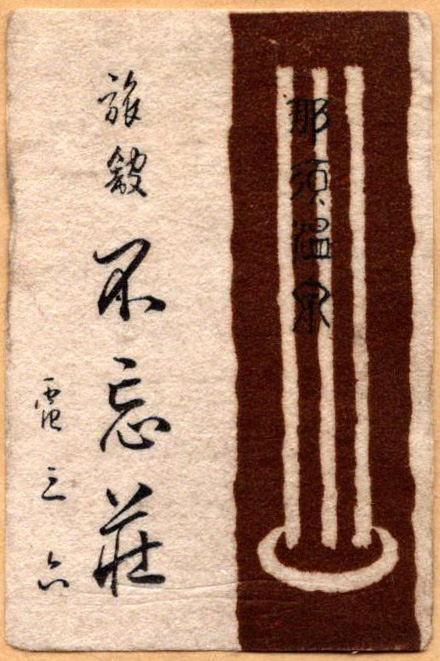 那須温泉
旅館
不忘荘
電三六